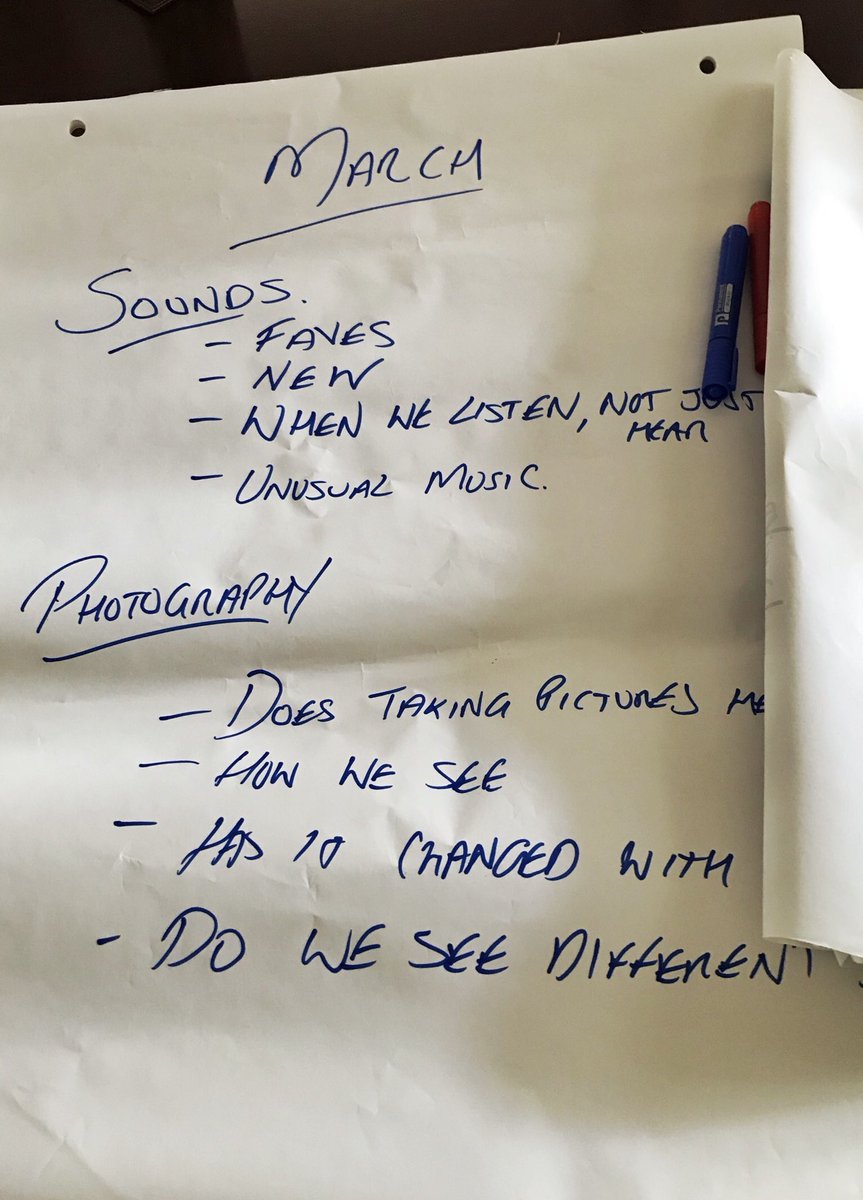 MARCH
SOUNDS.
- FAVES
- NEW
- WHEN WE LISTEN, NOT JUST
HEAR
- UNUSUAL MUSIC.
PHOTOGRAPHY
- DOES TAKING PICTURES
- HOW WE SEE
- HAS IT CHANGED WITH
- DO WE SEE DIFFERENT